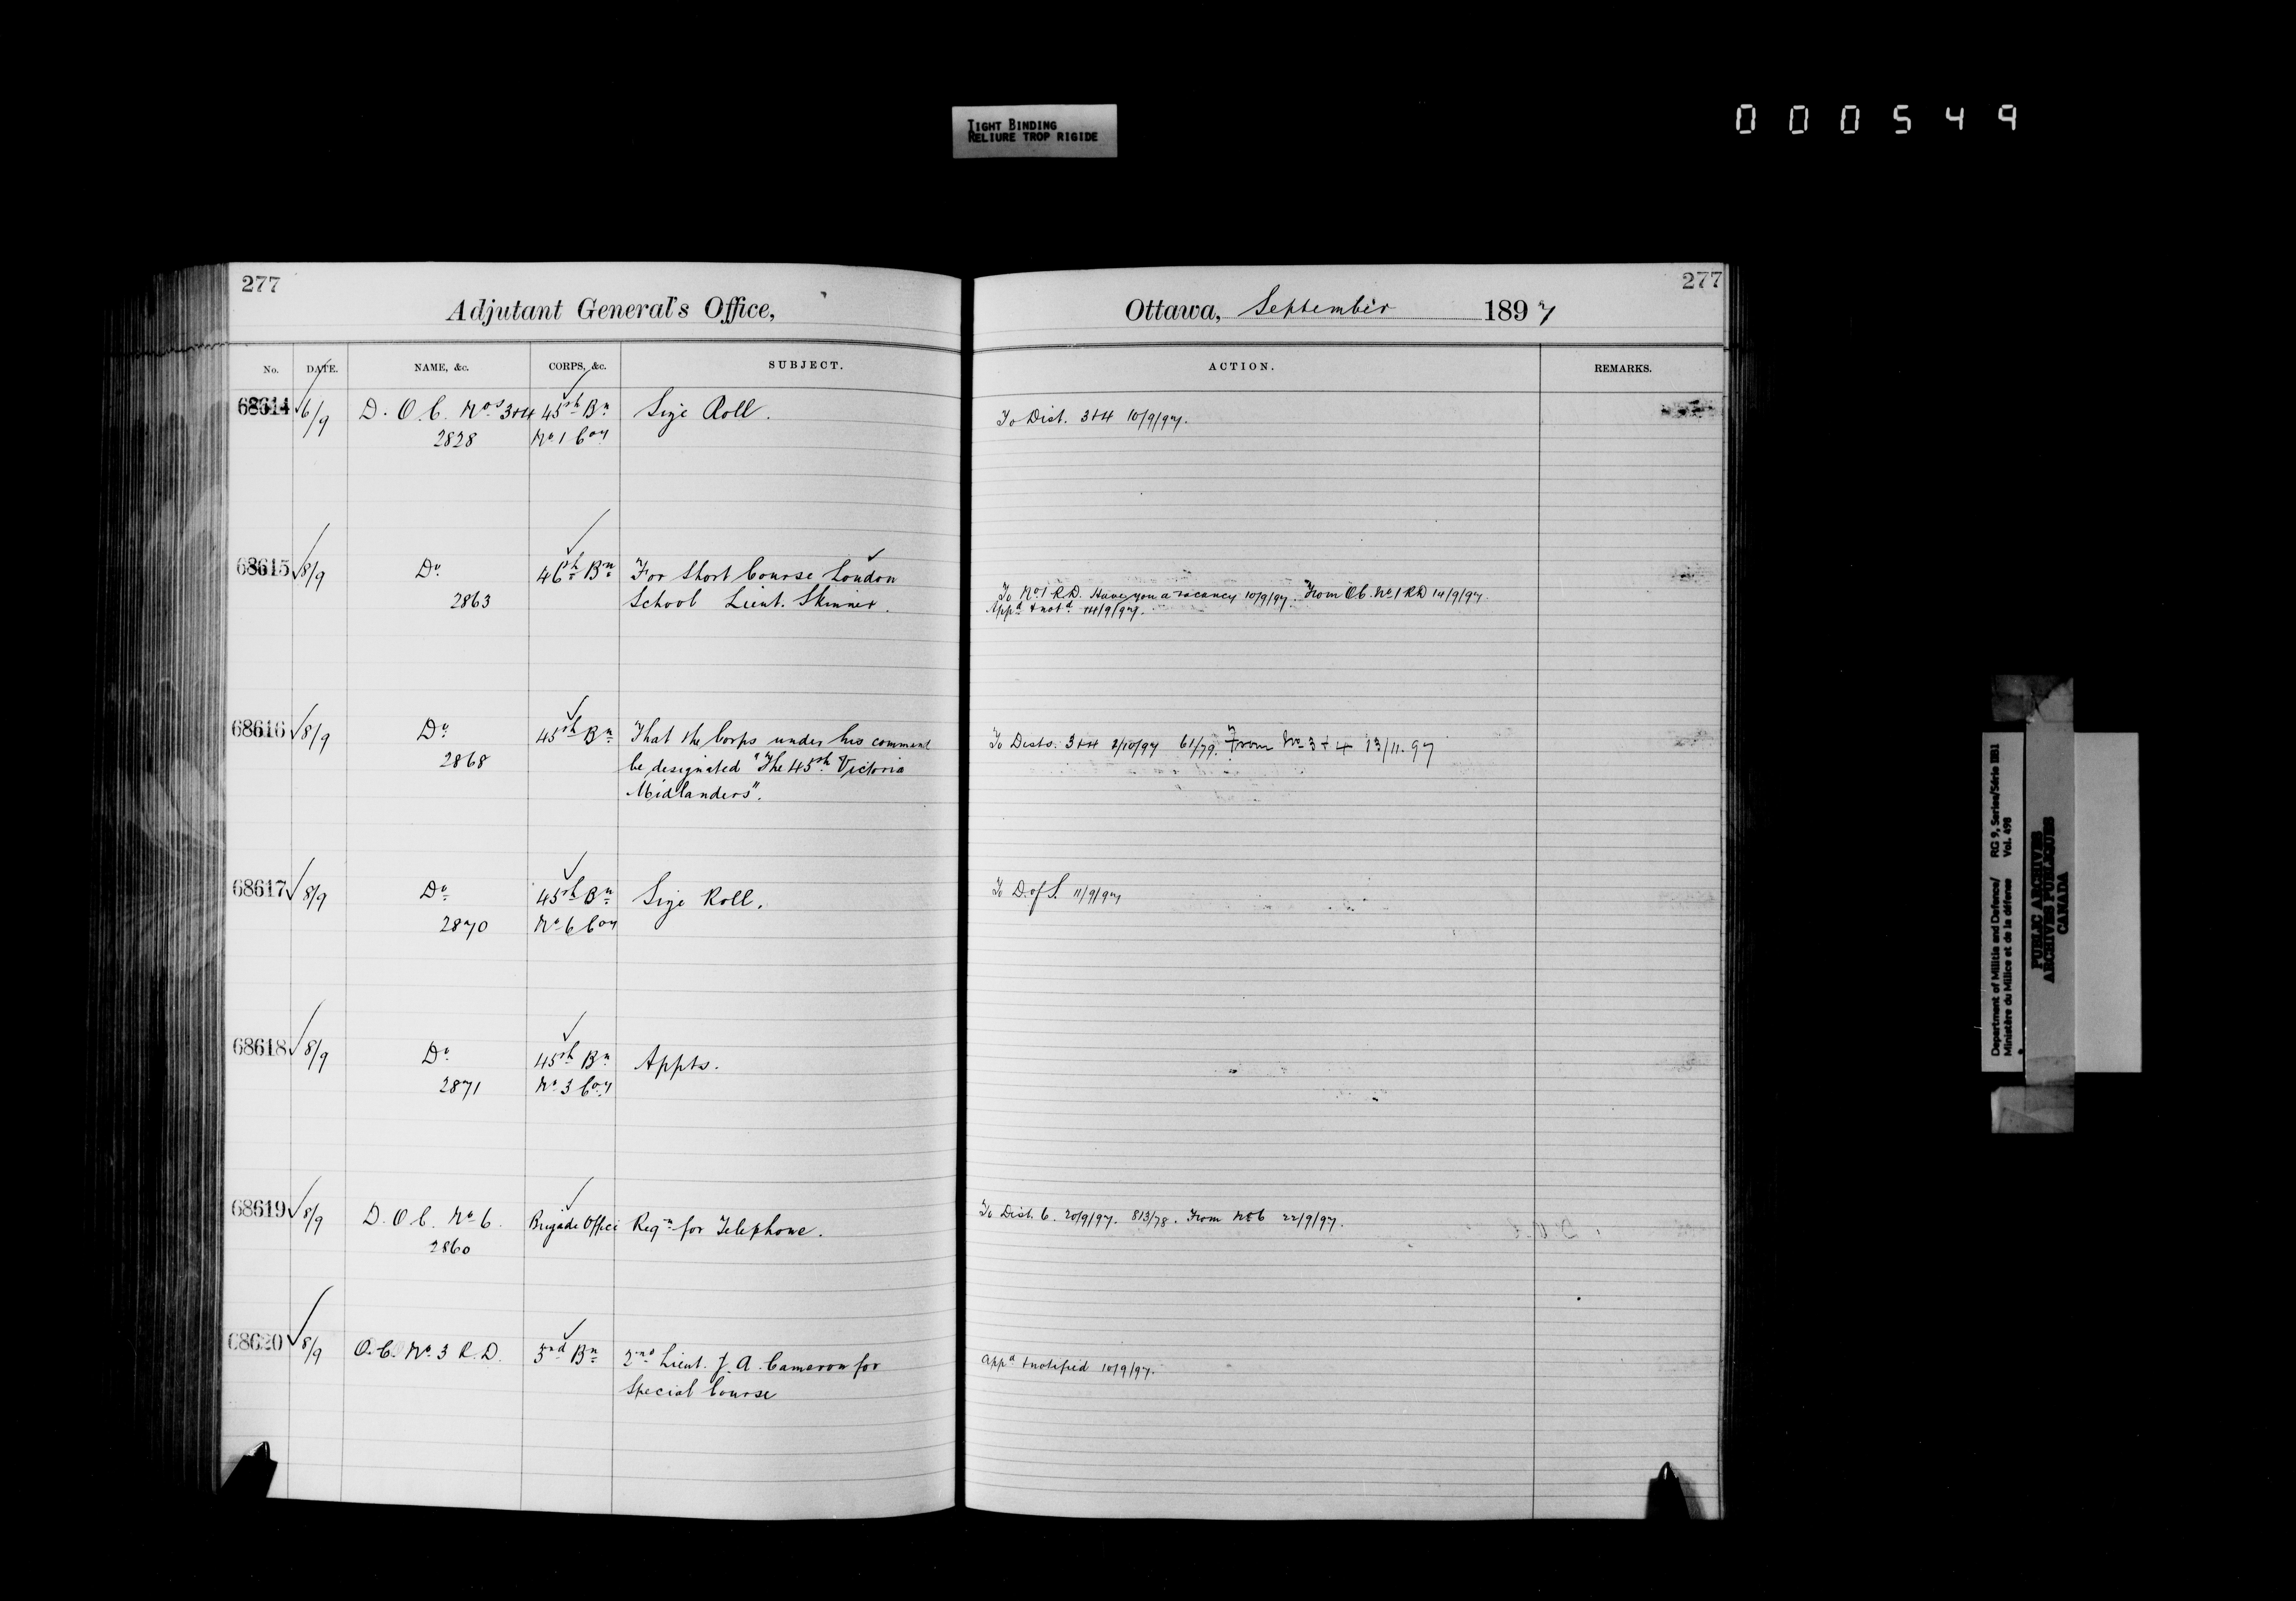 000549
TIGHT BINDING
RELIURE TROP RIGIDE
277
277
Adjutant General's Office,
Ottawa, September 1897
No. DATE. NAME, &c. CORPS, &c. SUBJECT.
ACTION. REMARKS.
68614 6/9 D. O C. Nos 3+4 45th Bn Size Roll.
2828 No 1 Coy
To Dist. 3+4 10/9/97.
68615 8/9 Do 46th Bn For Short Course London
2863 School Lieut. Skinner.
To No. 1 R.D. Have you a vacancy 10/9/97. From O.C. No. 1 R.D 14/9/97.
Appd & notd 14/9/97.
68616 8/9 Do 45th Bn That the Corps under his command
2868 be designated "The 45th Victoria
Midlanders".
To Dists. 3+4 2/10/97 61/79. From No 3 + 4 13/11.97
68617 8/9 Do 45th Bn Size Roll.
2870 No 6 Coy
To D. of S. 11/9/97
68618 8/9 Do 45th Bn Appts.
2871 No 3 Coy
68619 8/9 D. O C. No 6. Brigade Office Reqn for Telephone.
2860
To Dist. 6. 20/9/97. 813/78. From No 6 22/9/97.
68620 8/9 O. C. No 3 R. D. Bn 2nd Lieut. J. A. Cameron for
Special Course
Appd & notified 10/9/97.
Department of Militia and Defence/ RG 9, Series/Série IIB1
Ministère du Milice et de la défense Vol. 498
PUBLIC ARCHIVES
ARCHIVES PUBLIQUES
CANADA